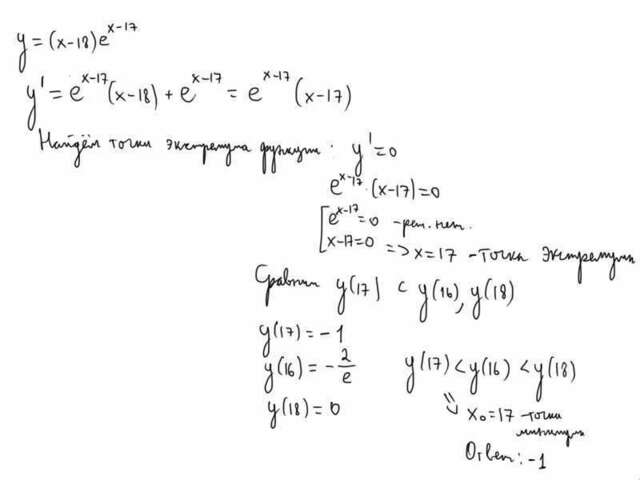 y = (x-18)e^{x-17}
y' = e^{x-17}(x-18) + e^{x-17} = e^{x-17}(x-17)
Найдём точки экстремума функции: y' = 0
e^{x-17}·(x-17) = 0
[ e^{x-17} = 0 - реш. нет.
x-17=0 => x = 17 - точка экстремума
Сравним y(17) с y(16), y(18)
y(17) = -1
y(16) = -2/e y(17) < y(16) < y(18)
y(18) = 0 => x₀ = 17 - точка
минимума
Ответ: -1